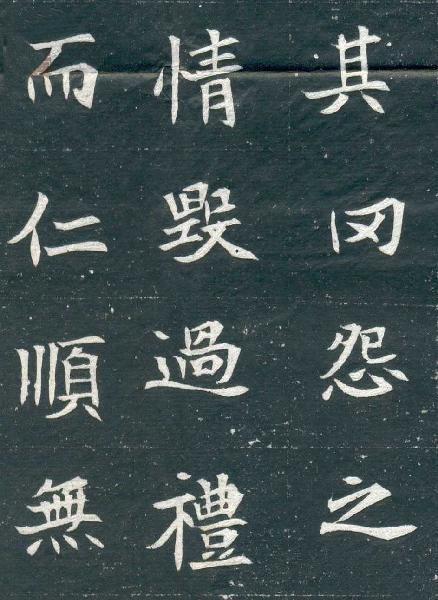 其罔怨之
情毀過禮
而仁順無